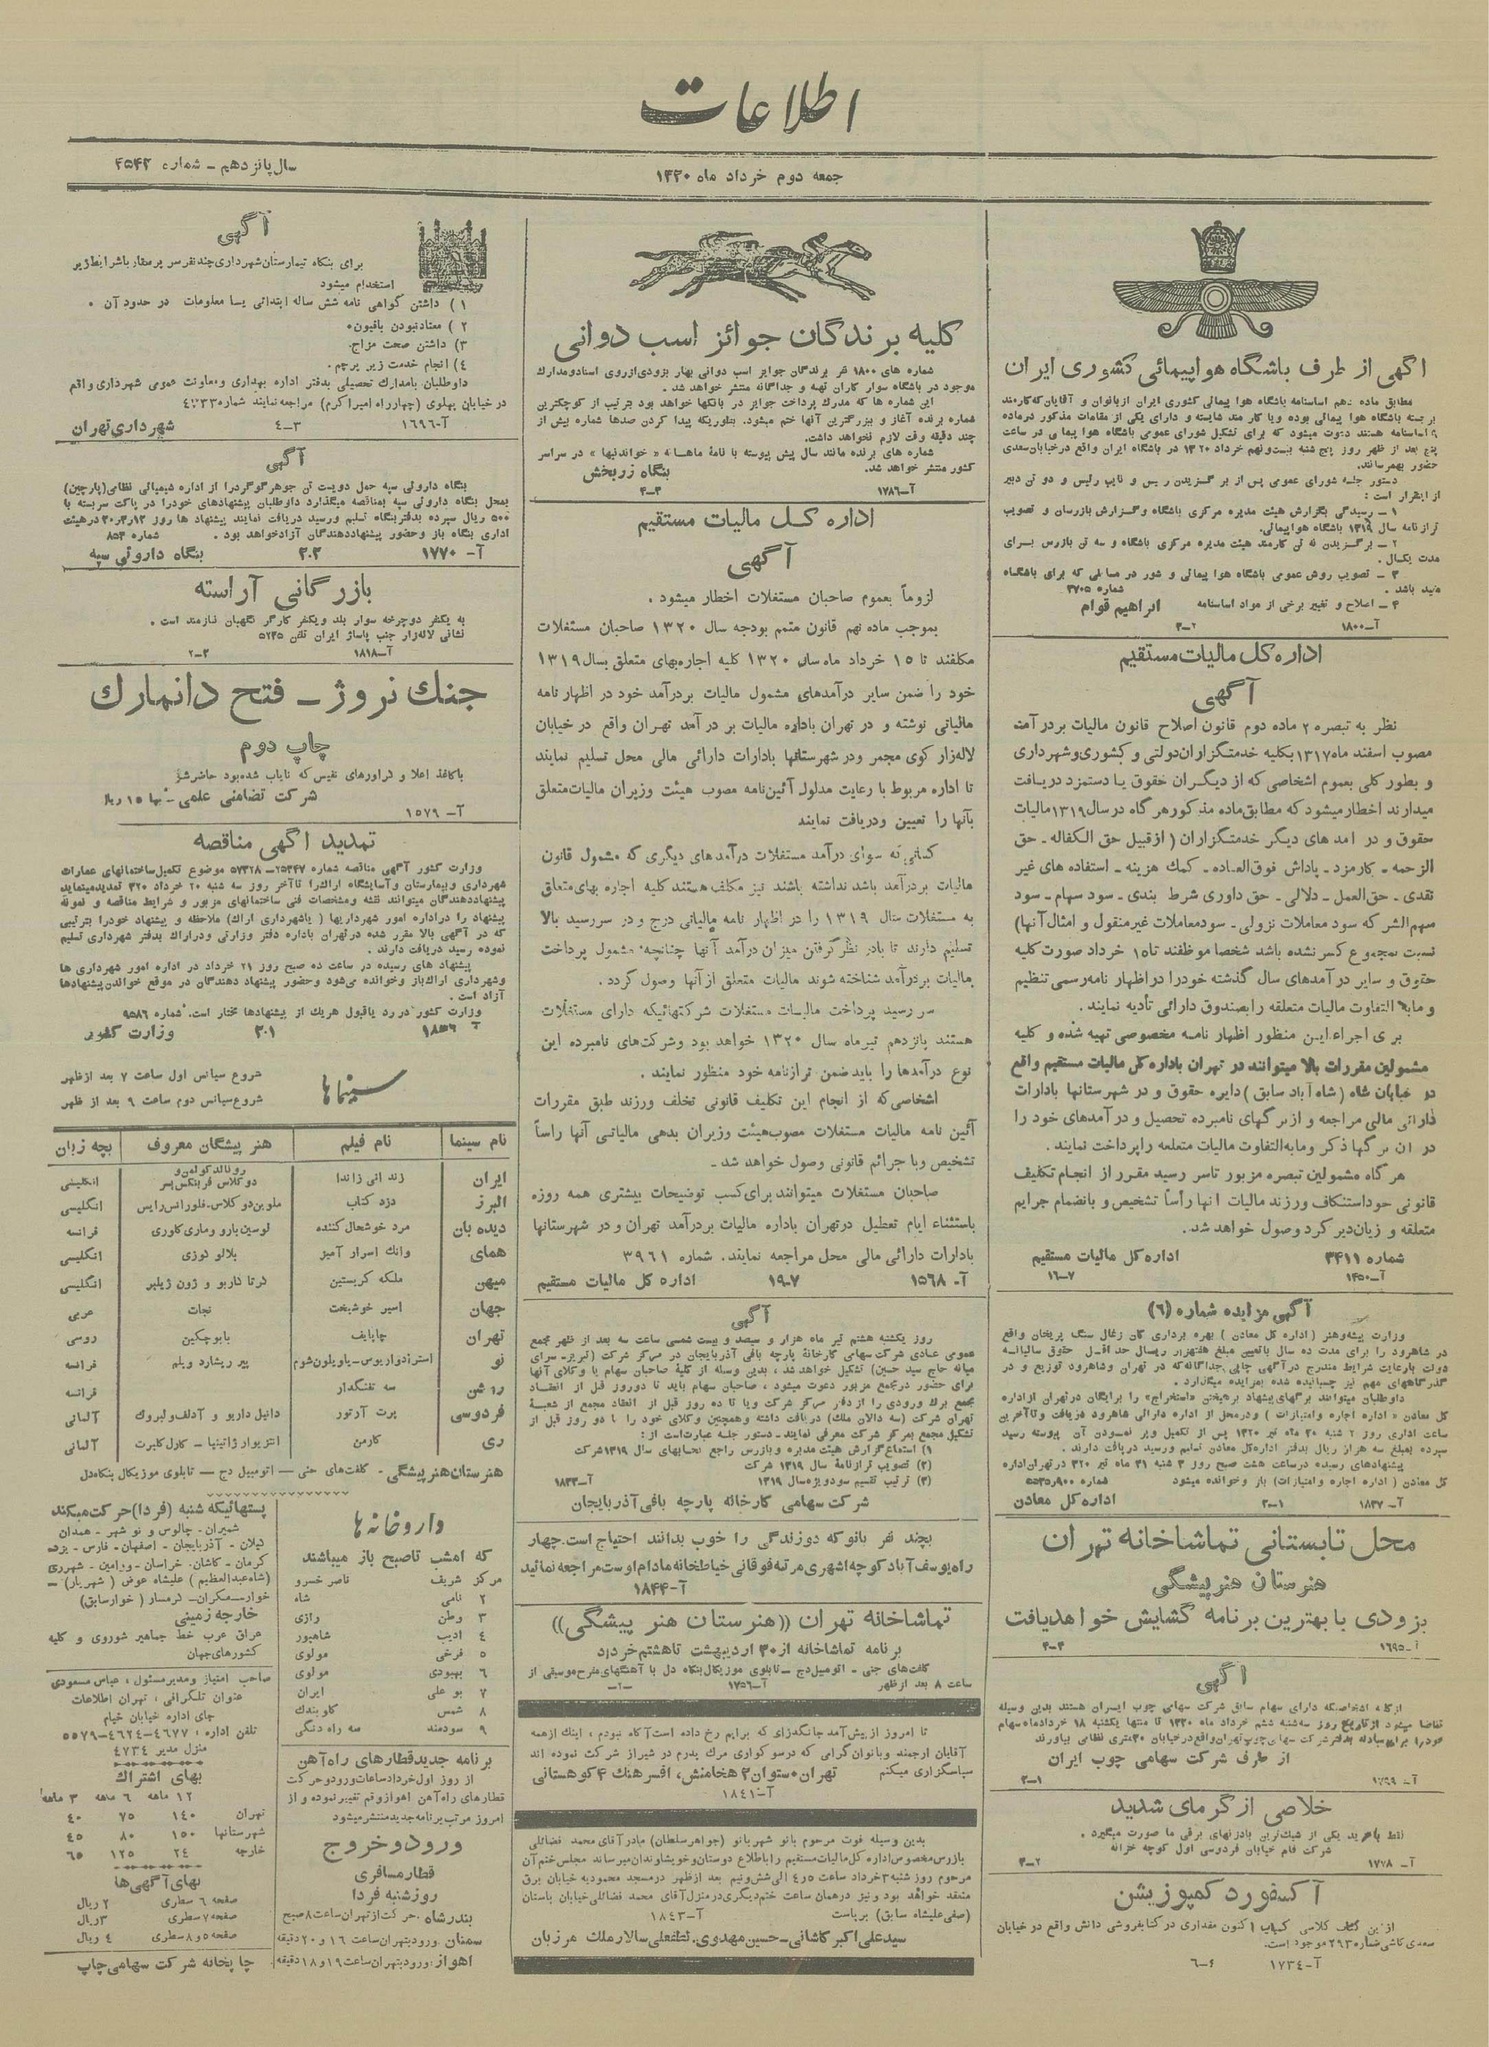 اطلاعات
جمعه دوم خرداد ماه ۱۳۲۰
سال پانزدهم ـ شماره ۴۵۴۲
آگهی از طرف باشگاه هواپیمائی کشوری ایران
مطابق ماده نهم اساسنامه باشگاه هوا پیمائی کشوری ایران از بانوان و آقایان که کارمند
برجسته باشگاه هوا پیمائی بوده و یا کارمند شایسته و دارای یکی از مقامات مذکور در ماده
۹ اساسنامه هستند دعوت میشود که برای تشکیل شورای عمومی باشگاه هوا پیمائی در ساعت
پنج بعد از ظهر روز پنج شنبه بیست و نهم خرداد ۱۳۲۰ در باشگاه ایران واقع در خیابان سعدی
حضور بهمرسانند.
دستور جلسه شورای عمومی پس از برگزیدن رئیس و نایب رئیس و دو تن دبیر
از اینقرار است :
۱ ـ رسیدگی بگزارش هیئت مدیره مرکزی باشگاه و گزارش بازرسان و تصویب
ترازنامه سال ۱۳۱۹ باشگاه هواپیمائی.
۲ ـ برگزیدن نه تن کارمند هیئت مدیره مرکزی باشگاه و سه تن بازرس برای
مدت یکسال.
۳ ـ تصویب روش عمومی باشگاه هوا پیمائی و شور در مسائلی که برای باشگاه
مفید باشد . شماره ۳۷۰۵
۴ ـ اصلاح و تغییر برخی از مواد اساسنامه ابراهیم قوام
آ ـ ۱۸۰۰ ۲ـ۲
اداره کل مالیات مستقیم
آگهی
نظر به تبصره ۲ ماده دوم قانون اصلاح قانون مالیات بر درآمد
مصوب اسفند ماه ۱۳۱۷ بکلیه خدمتگزاران دولتی و کشوری و شهرداری
و بطور کلی بعموم اشخاصی که از دیگران حقوق یا دستمزد دریافت
میدارند اخطار میشود که مطابق ماده مذکور هر گاه در سال ۱۳۱۹ مالیات
حقوق و درآمدهای دیگر خدمتگزاران (از قبیل حق الکفاله ـ حق
الزحمه ـ کارمزد ـ پاداش فوق العاده ـ کمک هزینه ـ استفاده های غیر
نقدی ـ حق العمل ـ دلالی ـ حق داوری شرط بندی ـ سود سهام ـ سود
سهم الشرکه سود معاملات نزولی ـ سود معاملات غیر منقول و امثال آنها)
نسبت بمجموع کسر نشده باشد شخصا موظفند تا ۱۵ خرداد صورت کلیه
حقوق و سایر درآمدهای سال گذشته خود را در اظهار نامه رسمی تنظیم
و مابه التفاوت مالیات متعلقه را بصندوق دارائی تأدیه نمایند .
برای اجراء این منظور اظهار نامه مخصوصی تهیه شده و کلیه
مشمولین مقررات بالا میتوانند در تهران باداره کل مالیات مستقیم واقع
در خیابان شاه (شاه آباد سابق) دایره حقوق و در شهرستانها بادارات
دارائی مالی مراجعه و از برگهای نامبرده تحصیل و درآمدهای خود را
در آن برگها ذکر و مابه التفاوت مالیات متعلقه را پرداخت نمایند.
هر گاه مشمولین تبصره مزبور تا سر رسید مقرر از انجام تکلیف
قانونی خود استنکاف ورزند مالیات آنها رأساً تشخیص و بانضمام جرایم
متعلقه و زیان دیر کرد وصول خواهد شد.
شماره ۳۴۱۱ اداره کل مالیات مستقیم
آ ـ ۱۴۵۰ ۷ـ۱۶
آگهی مزایده شماره (۶)
وزارت پیشه و هنر (اداره کل معادن) بهره برداری کان زغال سنگ پریخان واقع
در شاهرود را برای مدت ده سال باتعیین مبلغ هفتهزار ریال حداقل حقوق سالیانه
دولت بارعایت شرایط مندرج در آگهی چاپی جداگانه که در تهران و شاهرود توزیع و در
گذرگاههای مهم نیز چسبانیده شده بمزایده میگذارد .
داوطلبان میتوانند برگهای پیشنهاد را رایگان در تهران از اداره
کل معادن «اداره اجاره و امتیازات» و در محل از اداره دارائی شاهرود دریافت و تا آخرین
ساعت اداری روز ۲ شنبه ۳۰ ماه تیر ۱۳۲۰ پس از تکمیل آن پیوسته رسید
سپرده بمبلغ سه هزار ریال بدفتر اداره کل معادن تسلیم و رسید دریافت دارند.
پیشنهادهای رسیده در ساعت هشت صبح روز ۳ شنبه ۳۱ ماه تیر ۳۲۰ در تهران اداره
کل معادن (اداره اجاره و امتیازات) باز و خوانده میشود
آ ـ ۱۸۳۷ ۱ـ۳ اداره کل معادن
محل تابستانی تماشاخانه تهران
هنرستان هنرپیشگی
بزودی با بهترین برنامه گشایش خواهد یافت
آ ـ ۱۶۹۵ ۳ـ۳
آگهی
از کلیه اشخاصیکه دارای سهام سابق شرکت سهامی چوب ایران هستند بدین وسیله
تقاضا میشود از تاریخ روز سه شنبه ششم خرداد ماه ۱۳۲۰ تا منتها یکشنبه ۱۸ خرداد ماه سهام
خود را برای مبادله بدفتر شرکت سهامی چوب تهران واقع در خیابان ۳۰ متری نظامی بیاورند
از طرف شرکت سهامی چوب ایران
آ ـ ۱۷۹۹ ۱ـ۳
خلاصی از گرمای شدید
فقط با خرید یکی از شیک ترین بادزنهای برقی ما صورت میگیرد .
شرکت فام خیابان فردوسی اول کوچه خزانه
آ ـ ۱۷۷۸ ۲ـ۳
آکسفورد کمپوزیشن
از این کتاب کلاسی کمیاب اکنون مقداری در کتابفروشی دانش واقع در خیابان
سعدی کاشی شماره ۲۹۳ موجود است.
آ ـ ۱۷۳۴ ۶ـ۶
کلیه برندگان جوائز اسب دوانی
شماره های ۱۸۰۰ نفر برندگان جوایز اسب دوانی بهار بزودی از روی اسناد و مدارک
موجود در باشگاه سوار کاران تهیه و جداگانه منتشر خواهد شد .
این شماره ها که مدرک پرداخت جوایز در بانکها خواهد بود بترتیب از کوچکترین
شماره برنده آغاز و ببزرگترین آنها ختم میشود. بطوریکه پیدا کردن صدها شماره بیش از
چند دقیقه وقت لازم نخواهد داشت.
شماره های برنده مانند سال پیش پیوسته با نامه ماهانه « خواندنیها » در سراسر
کشور منتشر خواهد شد. بنگاه زربخش
آ ـ ۱۷۸۶ ۳ـ۳
اداره کل مالیات مستقیم
آگهی
لزوماً بعموم صاحبان مستغلات اخطار میشود .
بموجب ماده نهم قانون متمم بودجه سال ۱۳۲۰ صاحبان مستغلات
مکلفند تا ۱۵ خرداد ماه سال ۱۳۲۰ کلیه اجاره بهای متعلق بسال ۱۳۱۹
خود را ضمن سایر درآمدهای مشمول مالیات بر درآمد خود در اظهار نامه
مالیاتی نوشته و در تهران باداره مالیات بر درآمد تهران واقع در خیابان
لاله زار کوی مجمر و در شهرستانها بادارات دارائی مالی محل تسلیم نمایند
تا اداره مربوط با رعایت مدلول آئین نامه مصوب هیئت وزیران مالیات متعلق
بآنها را تعیین و دریافت نمایند
کسانی که سوای درآمد مستغلات درآمدهای دیگری که مشمول قانون
مالیات بردرآمد باشد نداشته باشند نیز مکلف هستند کلیه اجاره بهای متعلق
به مستغلات سال ۱۳۱۹ را در اظهار نامه مالیاتی درج و در سررسید بالا
تسلیم دارند تا بادر نظر گرفتن میزان درآمد آنها چنانچه مشمول پرداخت
مالیات بردرآمد شناخته شوند مالیات متعلق از آنها وصول گردد .
سررسید پرداخت مالیات مستغلات شرکتهائیکه دارای مستغلات
هستند پانزدهم تیر ماه سال ۱۳۲۰ خواهد بود و شرکت های نامبرده این
نوع درآمدها را باید ضمن ترازنامه خود منظور نمایند .
اشخاصی که از انجام این تکلیف قانونی تخلف ورزند طبق مقررات
آئین نامه مالیات مستغلات مصوب هیئت وزیران بدهی مالیاتی آنها رأساً
تشخیص و با جرائم قانونی وصول خواهد شد ـ
صاحبان مستغلات میتوانند برای کسب توضیحات بیشتری همه روزه
باستثناء ایام تعطیل در تهران باداره مالیات بردرآمد تهران و در شهرستانها
بادارات دارائی مالی محل مراجعه نمایند. شماره ۳۹۶۱
آ ـ ۱۵۶۸ ۷ـ۱۹ اداره کل مالیات مستقیم
آگهی
روز یکشنبه هشتم تیر ماه هزار و سیصد و بیست شمسی ساعت سه بعد از ظهر مجمع
عمومی عادی شرکت سهامی کارخانه پارچه بافی آذربایجان در مرکز شرکت (تبریز ـ سرای
میانه حاج سید حسین) تشکیل خواهد شد ، بدین وسیله از کلیه صاحبان سهام یا وکلای آنها
برای حضور در مجمع مزبور دعوت میشود ، صاحبان سهام باید تا دو روز قبل از انعقاد
مجمع برگ ورودی را از دفتر مرکز شرکت و یا تا ده روز قبل از انعقاد مجمع از شعبه
تهران شرکت (سه دالان ملک) دریافت داشته و همچنین وکلای خود را تا دو روز قبل از
تشکیل مجمع بمرکز شرکت معرفی نمایند ـ دستور جلسه عبارت است از :
۱) استماع گزارش هیئت مدیره و بازرس راجع بحسابهای سال ۱۳۱۹ شرکت
۲) تصویب ترازنامه سال ۱۳۱۹ شرکت
۳) ترتیب تقسیم سود ویژه سال ۱۳۱۹ آ ـ ۱۸۳۳
شرکت سهامی کارخانه پارچه بافی آذربایجان
بچند نفر بانو که دوزندگی را خوب بدانند احتیاج است. چهار
راه یوسف آباد کوچه اشهری مرتبه فوقانی خیاطخانه مادام اوست مراجعه نمائید
آ ـ ۱۸۴۴
تماشاخانه تهران ((هنرستان هنر پیشگی))
برنامه تماشاخانه از ۳۰ اردیبهشت تا هشتم خرداد
کلفت های جنی ـ اتومبیل دج ـ تابلوی موزیکال بنگاه دل با آهنگهای مفرح موسیقی از
ساعت ۸ بعد از ظهر آ ـ ۱۷۵۶
تا امروز از پیش آمد جانگدازی که برایم رخ داده است آگاه نبودم ، اینک از همه
آقایان ارجمند و بانوان گرامی که در سوگواری مرگ پدرم در شیراز شرکت نموده اند
سپاسگزاری میکنم تهران ستوان ۲ هخامنش، افسر هنگ ۴ کوهستانی
آ ـ ۱۸۴۱
بدین وسیله فوت مرحوم بانو شهربانو (جواهر سلطان) مادر آقای محمد فضائلی
بازرس مخصوص اداره کل مالیات مستقیم را باطلاع دوستان و خویشاوندان میرساند مجلس ختم آن
مرحوم روز شنبه ۳ خرداد ساعت ۴٫۵ الی شش و نیم بعد از ظهر در مسجد محمودیه خیابان برق
منعقد خواهد بود و نیز در همان ساعت ختم دیگری در منزل آقای محمد فضائلی خیابان باستان
(صفی علیشاه سابق) برپاست آ ـ ۱۸۴۳
سید علی اکبر کاشانی ـ حسین مهدوی. لطفعلی سالار ملک مرزبان
آگهی
برای بنگاه تیمارستان شهرداری چند نفر سر پرستار با شرایط زیر
استخدام میشود
۱ ) داشتن گواهی نامه شش ساله ابتدائی یا معلومات در حدود آن .
۲ ) معتاد نبودن بافیون.
۳) داشتن صحت مزاج.
۴) انجام خدمت زیر پرچم .
داوطلبان با مدارک تحصیلی بدفتر اداره بهداری و معاونت عمومی شهرداری واقع
در خیابان پهلوی (چهار راه امیر اکرم) مراجعه نمایند شماره ۴۷۳۳
آ ـ ۱۶۹۶ ۳ـ۴ شهرداری تهران
آگهی
بنگاه داروئی سپه حمل دویست تن جوهر گوگرد را از اداره شیمیائی نظامی (پارچین)
بمحل بنگاه داروئی سپه بمناقصه میگذارد داوطلبان پیشنهادهای خود را در پاکت سربسته با
۵۰۰ ریال سپرده بدفتر بنگاه تسلیم و رسید دریافت نمایند پیشنهاد ها روز ۲۰٫۳٫۱۲ در هیئت
اداری بنگاه باز و حضور پیشنهاد دهندگان آزاد خواهد بود . شماره ۸۵۳
آ ـ ۱۷۷۰ ۲ـ۲ بنگاه داروئی سپه
بازرگانی آراسته
به یکنفر دوچرخه سوار بلد و یکنفر کارگر نگهبان نیازمند است .
نشانی لاله زار جنب پاساژ ایران تلفن ۵۲۴۵
آ ـ ۱۸۱۸ ۲ـ۲
جنگ نروژ ـ فتح دانمارک
چاپ دوم
با کاغذ اعلا و گراورهای نفیس که نایاب شده بود حاضر شد
شرکت تضامنی علمی ـ بها ۱۵ ریال
آ ـ ۱۵۷۹
تمدید آگهی مناقصه
وزارت کشور آگهی مناقصه شماره ۲۵۳۴۷ ـ ۵۷۳۲۸ موضوع تکمیل ساختمانهای عمارات
شهرداری و بیمارستان و آسایشگاه اراک را تا آخر روز سه شنبه ۲۰ خرداد ۳۲۰ تمدید مینماید
پیشنهاد دهندگان میتوانند نقشه و مشخصات فنی ساختمانهای مزبور و شرایط مناقصه و نمونه
پیشنهاد را در اداره امور شهرداریها (یا شهرداری اراک) ملاحظه و پیشنهاد خود را بترتیبی
که در آگهی بالا مقرر شده در تهران باداره دفتر وزارتی و در اراک بدفتر شهرداری تسلیم
نموده رسید دریافت دارند.
پیشنهاد های رسیده در ساعت ده صبح روز ۲۱ خرداد در اداره امور شهرداری ها
و شهرداری اراک باز و خوانده می شود و حضور پیشنهاد دهندگان در موقع خواندن پیشنهادها
آزاد است .
وزارت کشور در رد یا قبول هر یک از پیشنهادها مختار است. شماره ۹۵۸۶
وزارت کشور
سینماها
شروع سیانس اول ساعت ۷ بعد از ظهر
شروع سیانس دوم ساعت ۹ بعد از ظهر
نام سینما نام فیلم هنر پیشگان معروف بچه زبان
ایران زندانی زاندا رونالد کولمن و دوگلاس فربنکس پسر انگلیسی
البرز دزد کتاب ملوین دوگلاس ـ فلورانس رایس انگلیسی
دیده بان مرد خوشحال کننده لوسین بارو و ماری گلوری فرانسه
همای وانک اسرار آمیز بلالو گوزی انگلیسی
میهن ملکه کریستین گرتا گاربو و ژون ژیلبر انگلیسی
جهان اسیر خوشبخت نجات عربی
تهران چاپایف بابوچکین روسی
نو استرادواریوس ـ پیر ریشارد ویلم فرانسه
روشن سه تفنگدار فرانسه
فردوسی پرت آرتور دانیل داریو و آدلف ولبروک آلمانی
ری کارمن آلمانی
هنرستان هنرپیشگی ـ کلفت های جنی ـ اتومبیل دج ـ تابلوی موزیکال بنگاه دل
داروخانه ها
که امشب تا صبح باز میباشند
مرکز شریف ناصر خسرو
۲ نامی شاه
۳ وطن رازی
۴ ادیب شاهپور
۵ فرخی مولوی
۶ بهبودی مولوی
۷ بوعلی ایران
۸ شمس گاو بندک
۹ سودمند سه راه دنگی
برنامه جدید قطارهای راه آهن
از روز اول خرداد ساعات ورود و حرکت
قطارهای راه آهن اهواز و قم تغییر نموده و از
امروز مرتب برنامه جدید منتشر میشود
ورود و خروج
قطار مسافری
روز شنبه فردا
بندر شاه. حرکت از تهران ساعت ۸ صبح
سمنان. ورود بتهران ساعت ۱۶ و ۲۰ دقیقه
اهواز. ورود بتهران ساعت ۱۹ و ۱۸ دقیقه
پستهائیکه شنبه (فردا) حرکت میکند
شمیران ـ چالوس و نو شهر ـ همدان
گیلان ـ آذربایجان ـ اصفهان ـ فارس ـ یزد
کرمان ـ کاشان. خراسان ـ ورامین ـ شهرری
(شاه عبدالعظیم) علیشاه عوض (شهریار) ـ
خوار ـ مکران ـ گرمسار (خوار سابق)
خارجه زمینی
عراق عرب خط جماهیر شوروی و کلیه
کشورهای جهان
صاحب امتیاز و مدیر مسئول ، عباس مسعودی
عنوان تلگرافی ، تهران اطلاعات
جای اداره خیابان خیام
تلفن اداره : ۴۶۷۷ـ۴۶۲۴ـ۵۵۷۹
منزل مدیر ۴۷۳۴
بهای اشتراک
۱۲ ماهه ۶ ماهه ۳ ماهه
تهران ۱۴۰ ۷۵ ۴۰
شهرستانها ۱۵۰ ۸۰ ۴۵
خارجه ۲۴ ۱۲۵ ۶۵
بهای آگهی ها
صفحه ۶ سطری ۲ ریال
صفحه ۷ سطری ۳ ریال
صفحه ۵ و ۸ سطری ۴ ریال
چاپخانه شرکت سهامی چاپ